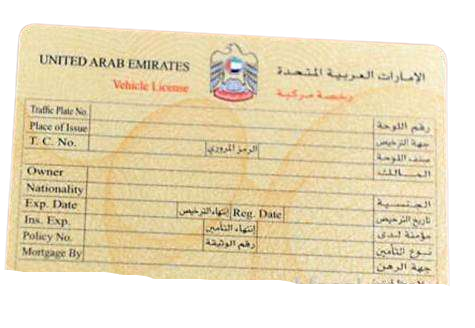 UNITED ARAB EMIRATES الإمارات العربية المتحدة
Vehicle License رخصة مركبة
Traffic Plate No. رقم اللوحة
Place of Issue جهة الترخيص
T. C. No. الرمز المروري صنف اللوحة
Owner المالك
Nationality الجنسية
Exp. Date إنتهاء الترخيص Reg. Date تاريخ الترخيص
Ins. Exp. إنتهاء التأمين مؤمنة لدى
Policy No. رقم الوثيقة نوع التأمين
Mortgage By جهة الرهن